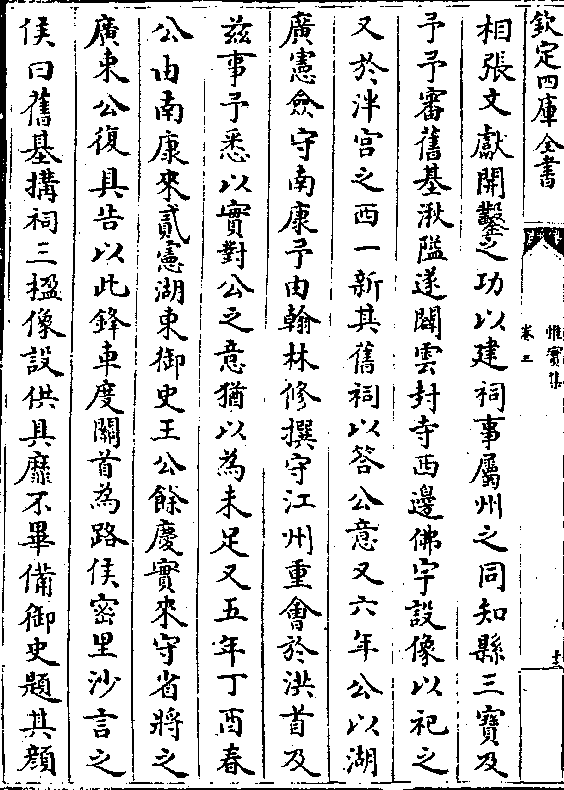 欽定四庫全書
惟實集
卷三
十
相張文獻開鑿之功以建祠事屬州之同知縣三寶及
予予審舊基湫隘遂闢雲封寺西邊佛宇設像以祀之
又於泮宫之西一新其舊祠以答公意又六年公以湖
廣憲僉守南康予由翰林修撰守江州重會於洪首及
兹事予悉以實對公之意猶以為未足又五年丁酉春
公由南康來貳憲湖東御史王公餘慶實來守省將之
廣東公復具告以此鋒車度關首為路侯密里沙言之
侯曰舊基搆祠三楹像設供具靡不畢備御史題其顔